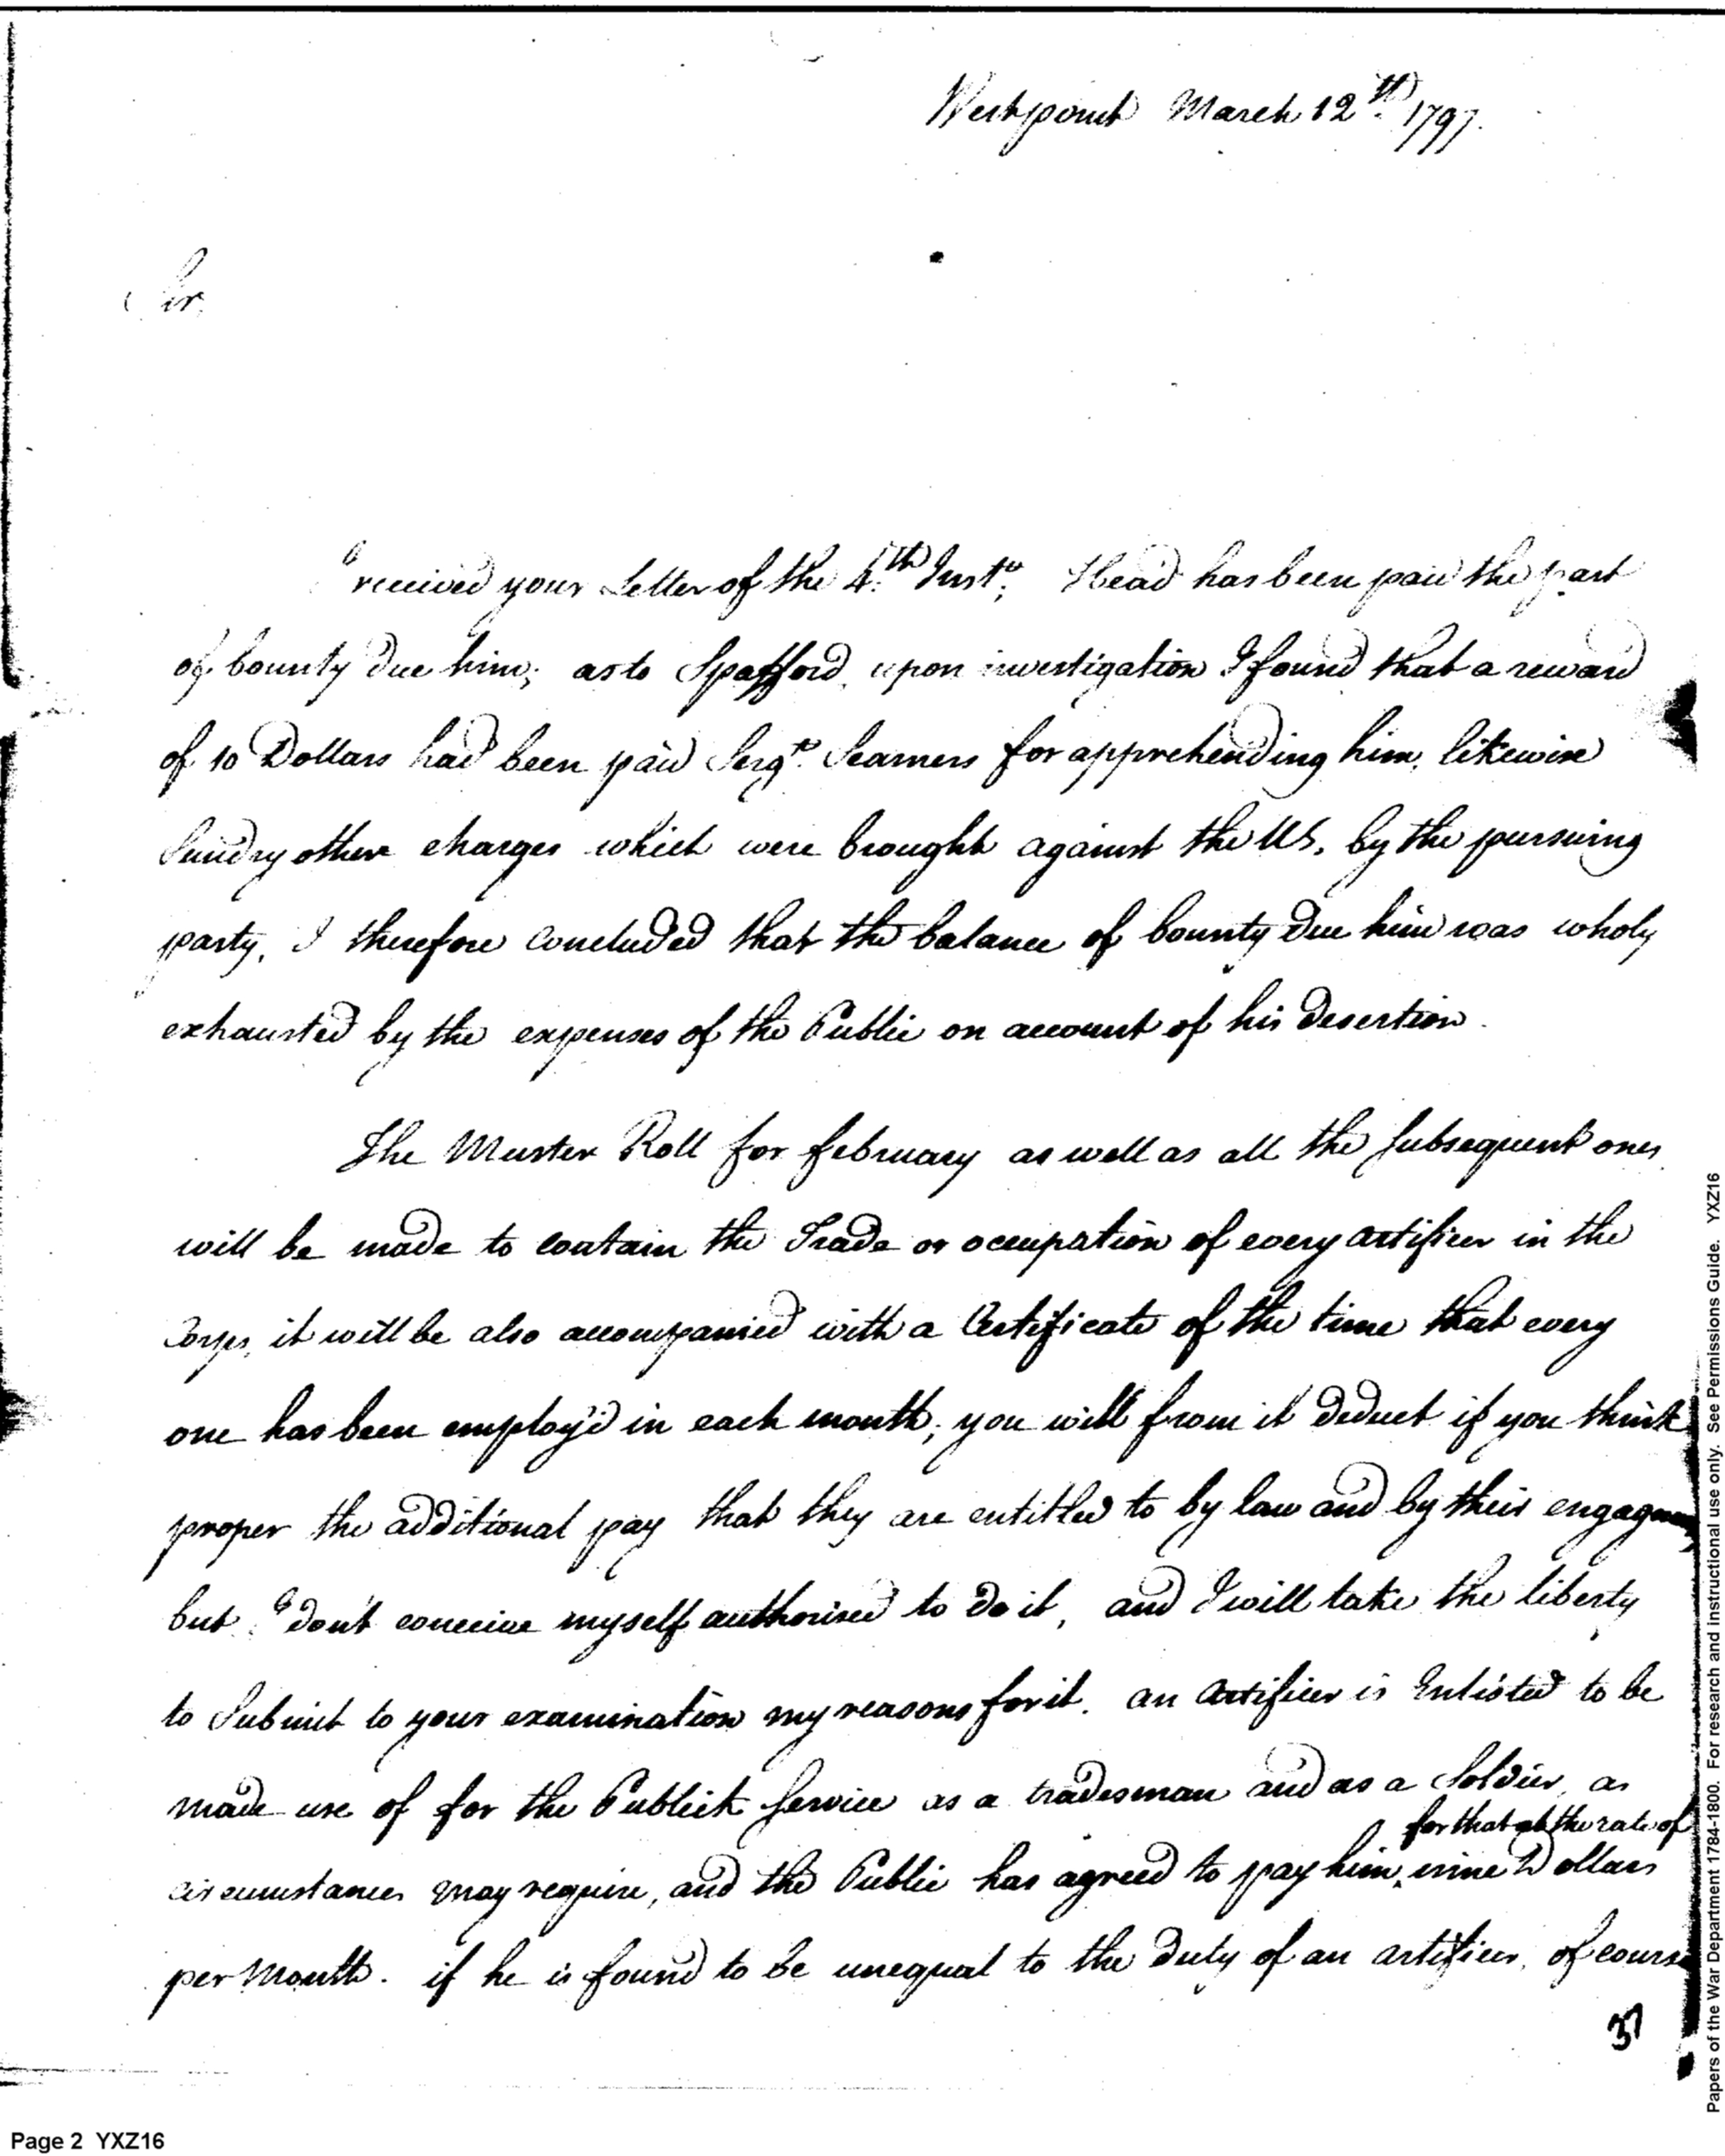 Westpoint March 12th. 1797.
Sir,
I received your Letter of the 4th. Inst; Head has been paid the part
of bounty due him; as to Spafford, upon investigation I found that a reward
of 10 Dollars had been paid Sergt. Seamers for apprehending him, likewise
Sundry other charges which were brought against the US, by the pursuing
party, I therefore concluded that the balance of bounty due him was wholy
exhausted by the expenses of the Public on account of his desertion.
The Muster Roll for february as well as all the Subsequent ones
will be made to contain the Trade or occupation of every artificer in the
Corps, it will be also accompanied with a Certificate of the time that every
one has been employ'd in each month; you will from it deduct if you think
proper the additional pay that they are entitled to by law and by their
but I don't conceive myself authorised to do it, and I will take the liberty
to Submit to your examination my reasons for it. an Artificer is Enlisted to be
made use of for the Publick Service as a tradesman and as a Soldier, as
for that at the rate of
circumstances may require, and the Public has agreed to pay him, nine Dollars
per Month. if he is found to be unequal to the duty of an artificer, of course
37
Page 2 YXZ16
Papers of the War Department 1784-1800. For research and instructional use only. See Permissions Guide. YXZ16